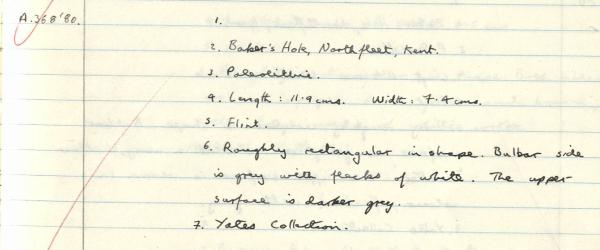 A.368'80.
1.
2. Baker's Hole, Northfleet, Kent.
3. Paleolithic.
4. Length : 11.9 cms. Width : 7.4 cms.
5. Flint.
6. Roughly rectangular in shape. Bulbar side
is grey with flecks of white. The upper
surface is darker grey.
7. Yates Collection.